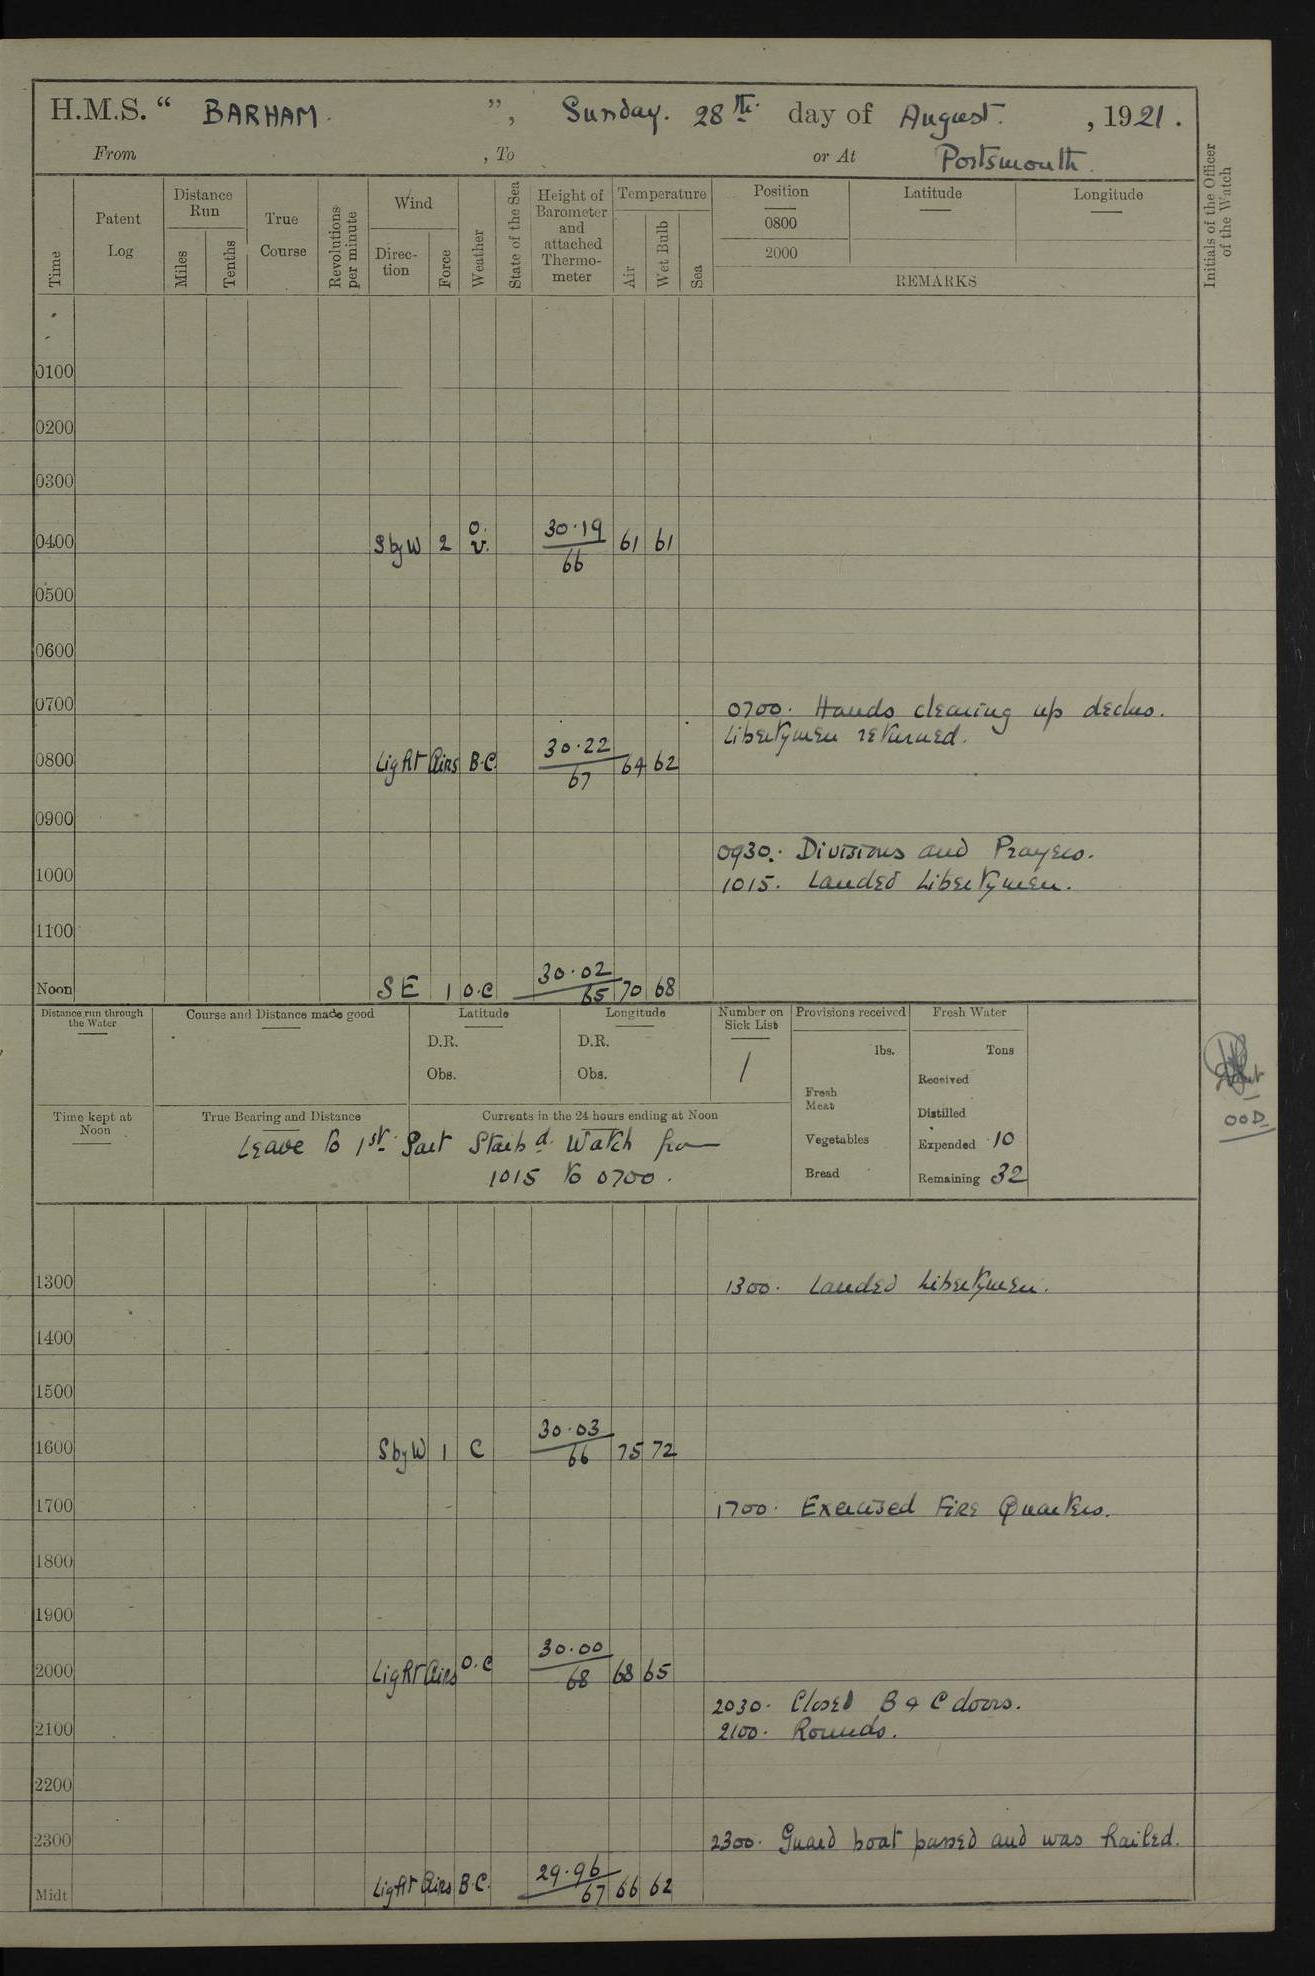 H.M.S. “ BARHAM. ”, Sunday. 28th. day of August. , 1921.
From , To or At Portsmouth.
Time
Patent Log
Distance Run
Miles
Tenths
True Course
Revolutions per minute
Wind
Direction
Force
Weather
State of the Sea
Height of Barometer and attached Thermometer
Temperature
Air
Wet Bulb
Sea
Position
0800
2000
Latitude
Longitude
REMARKS
Initials of the Officer of the Watch
0100
0200
0300
0400 S by W 2 O. V. 30.19 66 61 61
0500
0600
0700 0700. Hands cleaning up decks.
Libertymen returned.
0800 Light Airs B.C. 30.22 67 64 62
0900
0930. Divisions and Prayers.
1000 1015. Landed Libertymen.
1100
Noon SE 1 O.C 30.02 65 70 68
Distance run through the Water
Course and Distance made good
Latitude
D.R.
Obs.
Longitude
D.R.
Obs.
Number on Sick List
1
Provisions received
lbs.
Fresh Meat
Vegetables
Bread
Fresh Water
Tons
Received
Distilled
Expended 10
Remaining 32
OOD
Time kept at Noon
True Bearing and Distance
Currents in the 24 hours ending at Noon
Leave to 1st. Part Starbd. Watch from
1015 to 0700.
1300 1300. Landed Libertymen.
1400
1500
1600 S by W 1 C 30.03 66 75 72
1700 1700. Exercised Fire Quarters.
1800
1900
2000 Light Airs O.C 30.00 68 68 65
2030. Closed B & C doors.
2100 2100. Rounds.
2200
2300 2300. Guard boat passed and was hailed.
Midt Light Airs B.C. 29.96 67 66 62